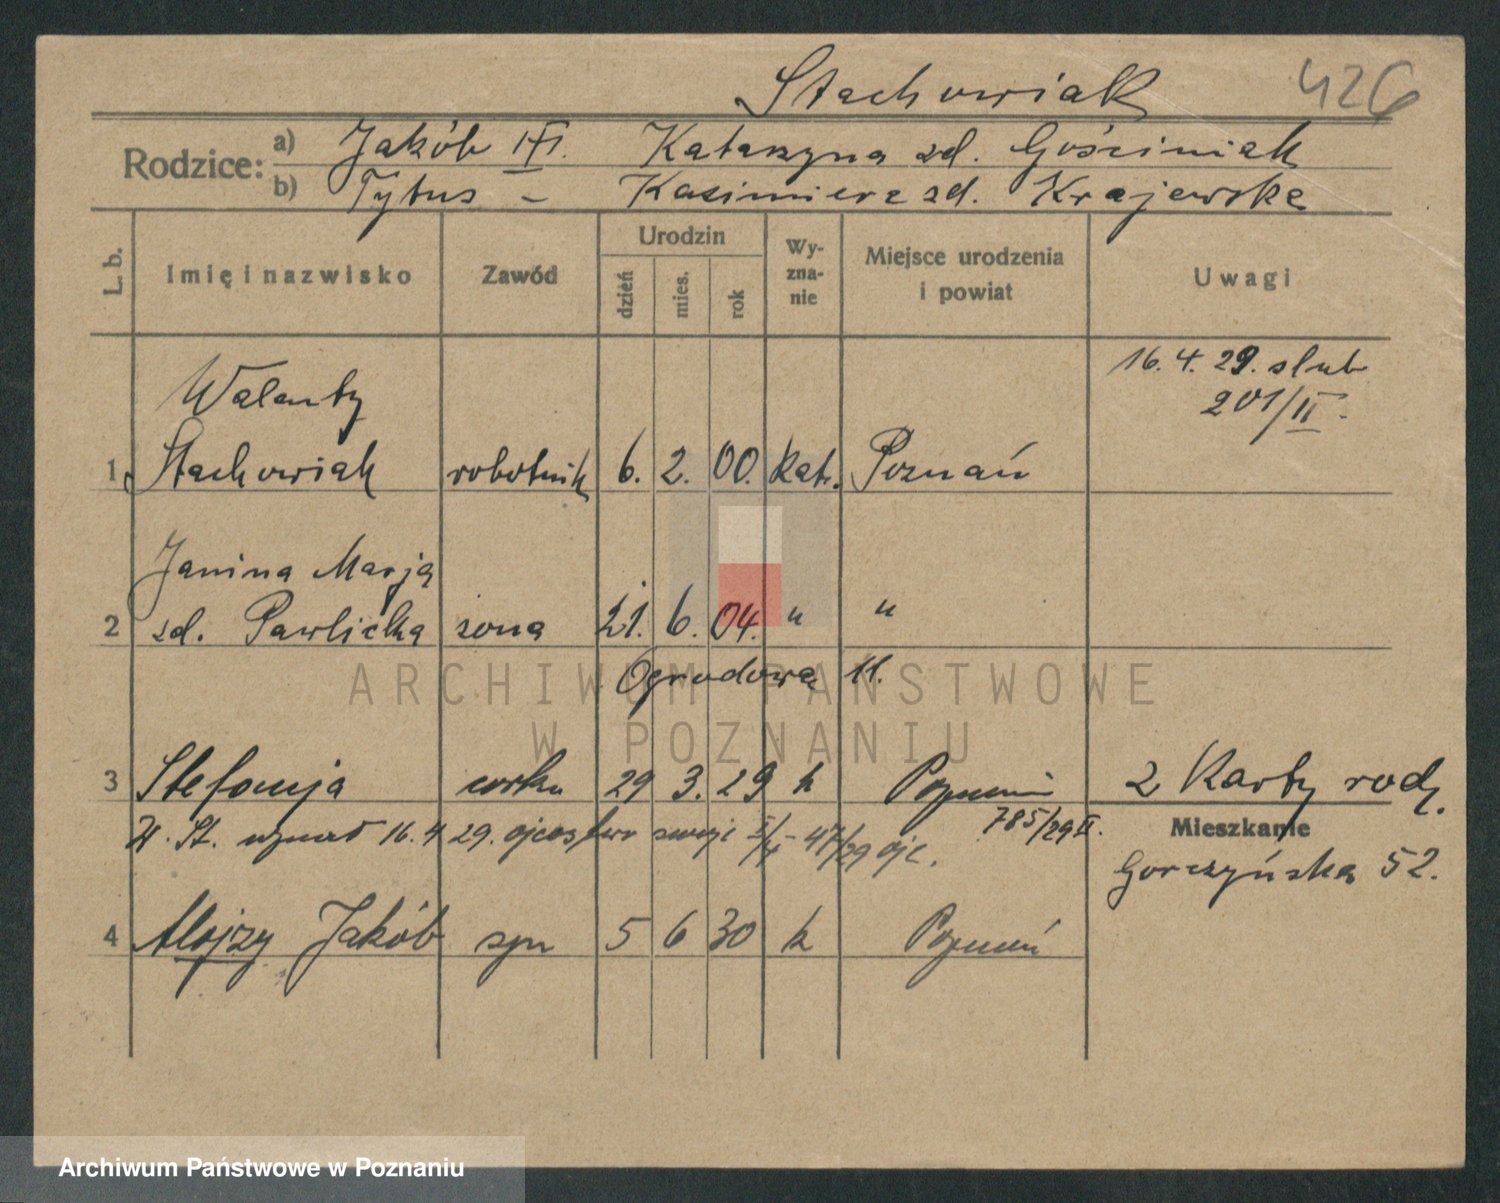 Stachowiak 426
Rodzice: a) Jakób Katarzyna zd. Gościniak
b) Tytus – Kazimiera zd. Krajewska
L. b. Imię i nazwisko Zawód Urodzin dzień mies. rok Wy-zna-nie Miejsce urodzenia i powiat Uwagi
16. 4. 29. slub
201/II.
Walenty
1 Stachowiak robotnik 6. 2. 00. kat. Poznań
Janina Marja
2 zd. Pawlicka zona 21. 6. 04. " "
Ogrodowa 11.
ARCHIWUM PAŃSTWOWE
W POZNANIU
3 Stefanja corka 29 3. 29 k Poznań 2 Karty rodz.
785/29 II.
W. St. uznał 16. 4 29. ojcostwo swoje 47/29 ojc.
Mieszkanie
Gorczyńska 52.
4 Alojzy Jakób syn 5 6 30 k Poznań
Archiwum Państwowe w Poznaniu